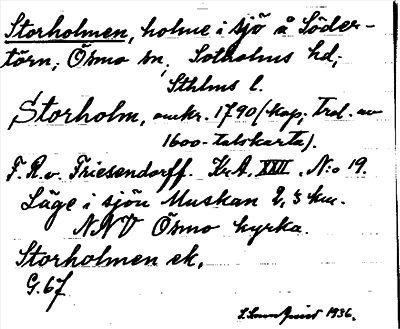 Storholmen, holme i sjö å Söder-
törn; Ösmo sn. Sotholms hd;
Sthlms l.
Storholm, omkr. 1790 (kop; trol. av
1600-talskarta).
F. R. v. Friesendorff. Kr. A. XXII. N:o 19.
Läge i sjön Muskan 2,3 km.
NNV Ösmo kyrka.
Storholmen ek.
G. 67
1936.